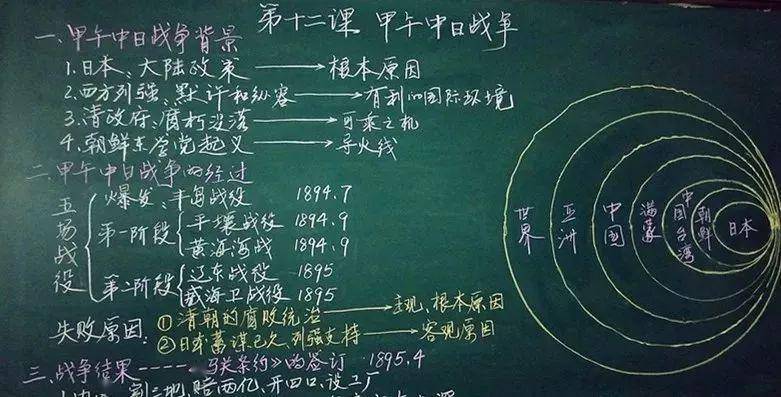 第十二课 甲午中日战争
一、甲午中日战争背景
1.日本、大陆政策 → 根本原因
2.西方列强、默许和纵容 → 有利的国际环境
3.清政府、腐朽没落 → 可乘之机
4.朝鲜东学党起义 → 导火线
二、甲午中日战争的经过
五场战役
爆发:丰岛战役 1894.7
第一阶段
平壤战役 1894.9
黄海海战 1894.9
第二阶段
辽东战役 1895
威海卫战役 1895
失败原因:
①清朝的腐败统治 → 主观、根本原因
②日本蓄谋已久,列强支持 → 客观原因
三、战争结果----《马关条约》的签订 1895.4
割三地,赔两亿、开四口、设工厂
世界
亚洲
中国
满蒙
中国台湾
朝鲜
日本